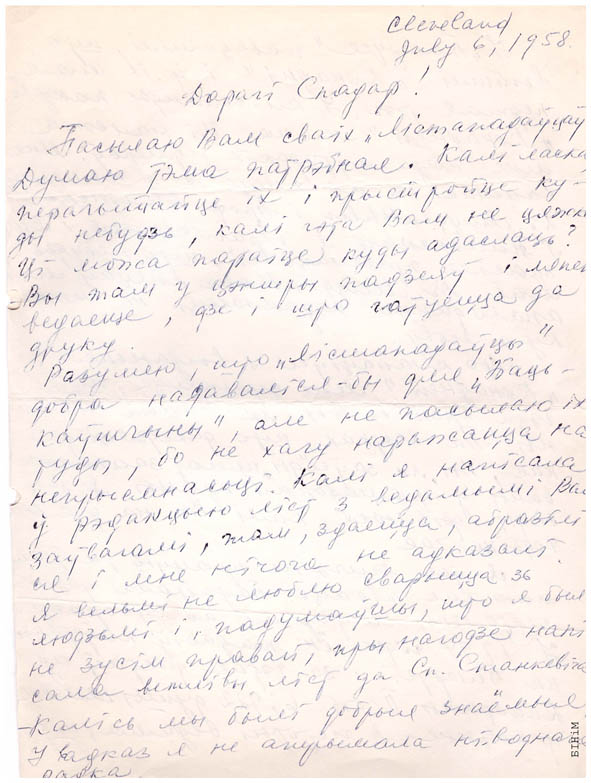 Cleveland
July 6, 1958.
Дарагі Спадар!
Пасылаю Вам сваіх „Лістападаўцаў
Думаю тэма патрэбная. Калі ласка
перачытайце іх і прыстройце ку-
ды небудзь, калі гэта Вам не цяжк
Ці можа параіце куды адаслаць?
Вы там у цэнтры падзеяў і ляпей
ведаеце, дзе і што гатуецца да
друку.
Разумею, што „Лістападаўцы"
добра надаваліся-бы для „Баць-
каўшчыны", але не пасылаю іх
туды, бо не хачу наражацца на
непрыемнасьці. Калі я напісала
ў рэдакцыю ліст з ведамымі Вам
заўвагамі, там, здаецца, абразілі
ся і мне нічога не адказалі.
Я вельмі не люблю сварыцца зь
людзьмі і, падумаўшы, што я была
не зусім правай, пры нагодзе напі
сала ветлівы ліст да Сп. Станкевіча
-Калісь мы былі добрыя знаёмыя
У вадказ я не атрымала ніводна
радка.
БІНіМ